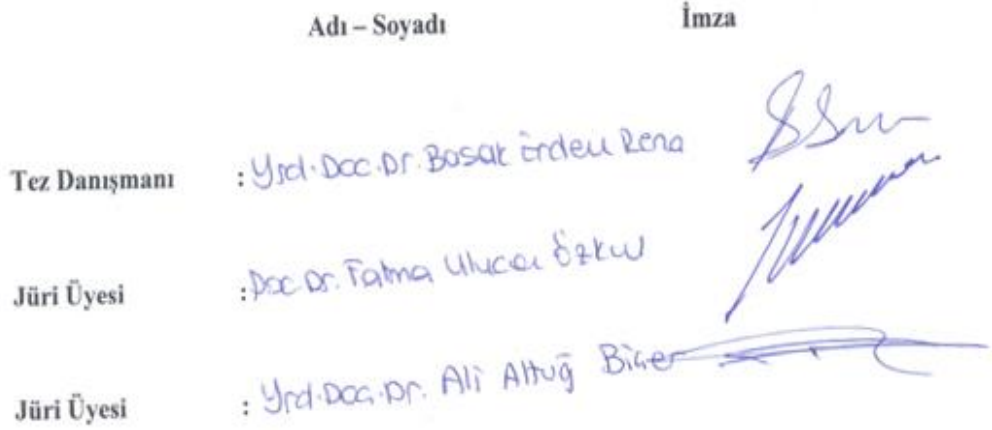 Adı – Soyadı İmza
Tez Danışmanı : Yrd.Doc.Dr. Başak
Jüri Üyesi : Doc Dr. Fatma Ulucan Özkul
Jüri Üyesi : Yrd.Doc.Dr. Ali Altuğ Biçer